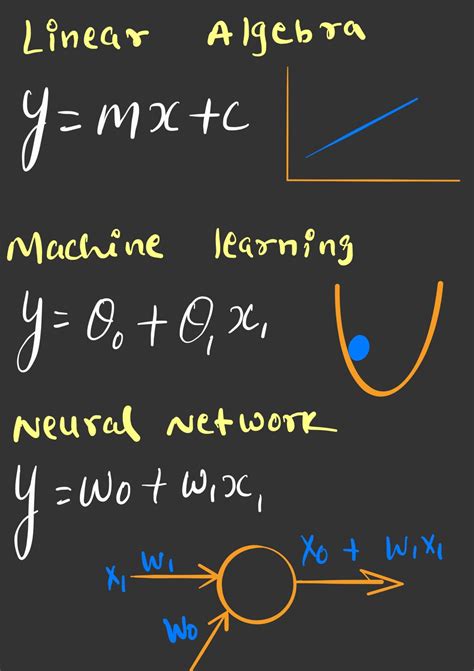 Linear Algebra
y = mx + c
Machine learning
y = θ₀ + θ₁ x₁
Neural Network
y = w₀ + w₁x₁
x₁ w₁
x₀ + w₁x₁
w₀